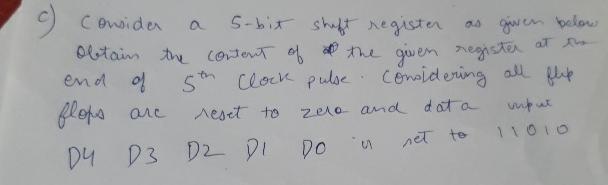 c) Consider a 5-bit shift register as given below
Obtain the content of the given register at the
end of 5th Clock pulse. Considering all flip
flops are reset to zero and data input
D4 D3 D2 D1 D0 is set to 11010